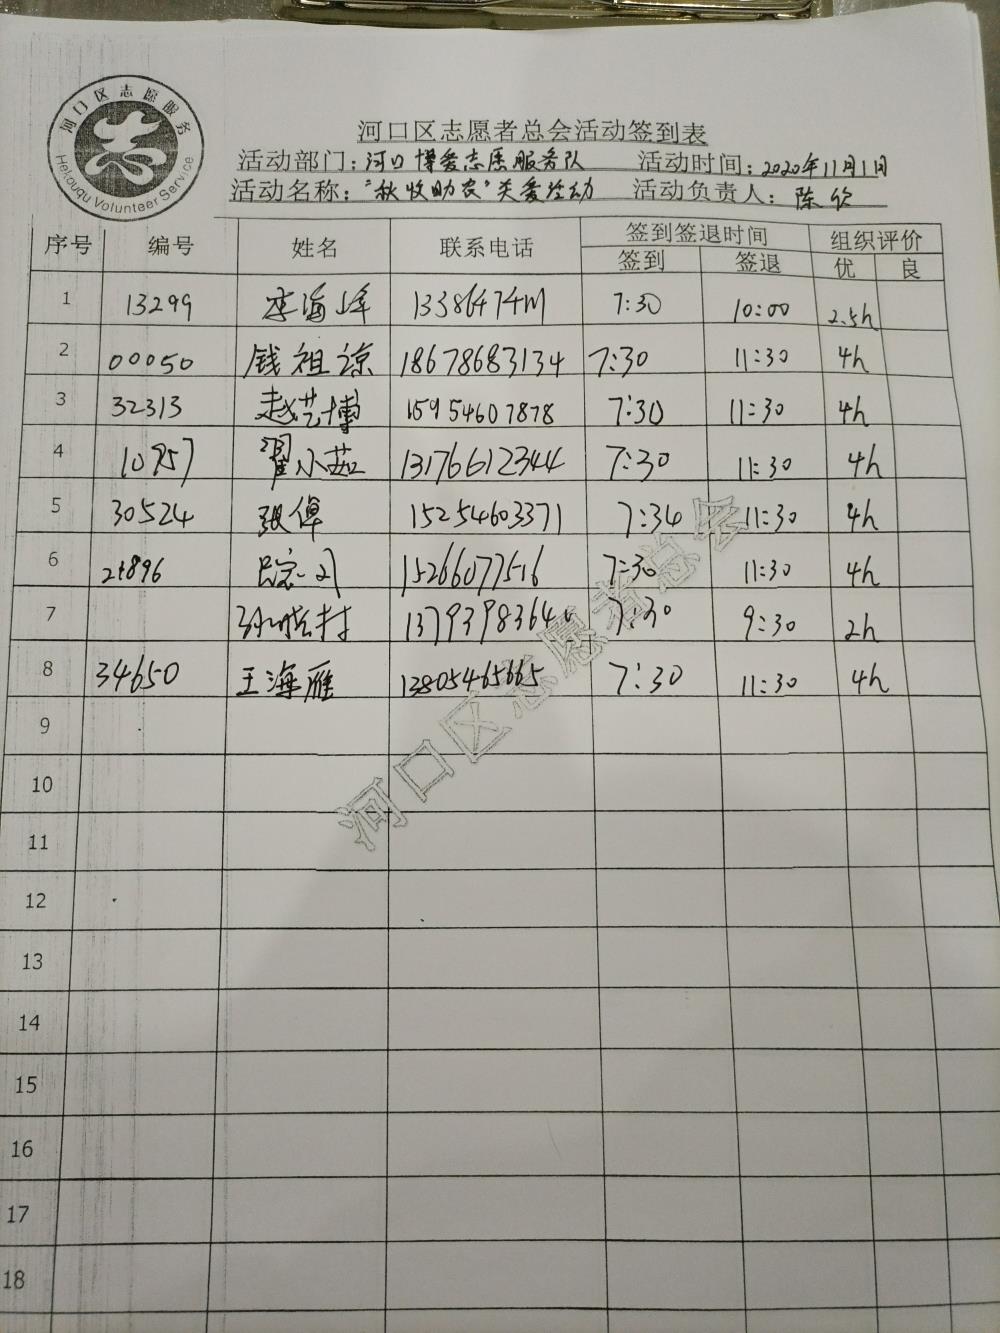 河口区志愿服务
志
Hekouqu Volunteer Service
河口区志愿者总会活动签到表
活动部门：河口博爱志愿服务队 活动时间：2020年11月1日
活动名称："秋收助农"关爱活动 活动负责人：陈欣
序号 编号 姓名 联系电话 签到签退时间 组织评价
签到 签退 优 良
1 13299 李海峰 7:30 10:00 2.5h
2 00050 钱祖谅 18678683134 7:30 11:30 4h
3 32313 赵艺博 15954607878 7:30 11:30 4h
4 10957 翟小茹 13176612344 7:30 11:30 4h
5 30524 张倬 15254603371 7:30 11:30 4h
6 15266077516 7:30 11:30 4h
7 7:30 9:30 2h
8 34650 王海雁 13805465665 7:30 11:30 4h
9
10
11
12
13
14
15
16
17
18
河口区志愿者总会